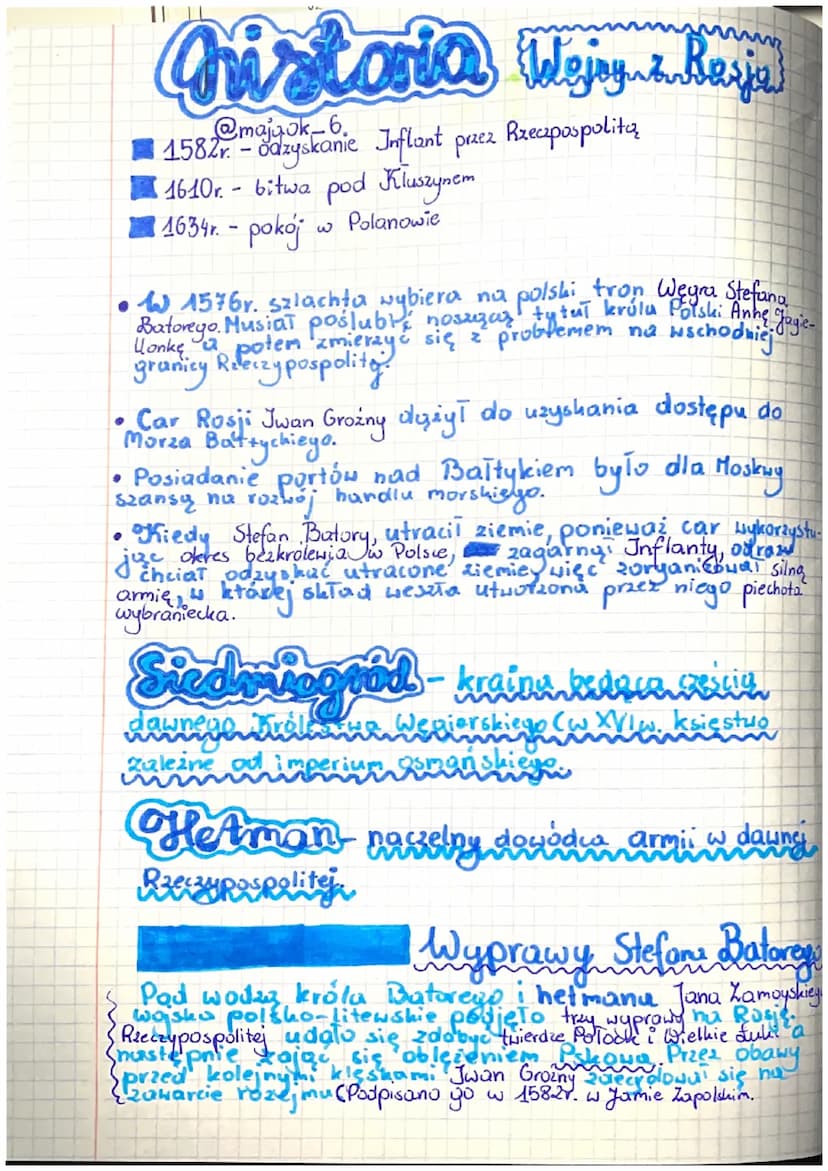 historia Wojny z Rosją
@majqok_6.
1582r. - odzyskanie Inflant przez Rzeczpospolitą
1610r. - bitwa pod Kłuszynem
1634r. - pokój w Polanowie
• W 1576r. szlachta wybiera na polski tron Węgra Stefana
Batorego. Musiał poślubić noszącą tytuł królu Polski Annę Jagie-
llonkę, a potem zmierzyć się z problemem na wschodniej
granicy Rzeczypospolitej.
• Car Rosji Iwan Groźny dążył do uzyskania dostępu do
Morza Bałtyckiego.
• Posiadanie portów nad Bałtykiem było dla Moskwy
szansą na rozwój handlu morskiego.
• Kiedy Stefan Batory, utracił ziemie, ponieważ car wykorzystu-
jąc okres bezkrólewia w Polsce, zagarnął Inflanty, odrazu
chciał odzyskać utracone ziemie, więc zorganizował silną
armię, w której skład weszła utworzona przez niego piechota
wybraniecka.
Siedmiogród - kraina będąca częścią
dawnego Królestwa Węgierskiego (w XVI w. księstwo
zależne od imperium osmańskiego.
Hetman - naczelny dowódca armii w dawnej
Rzeczypospolitej.
Wyprawy Stefana Batorego
Pod wodzą króla Batorego i hetmana Jana Zamoyskiego
wojsko polsko-litewskie podjęło trzy wyprawy na Rosję.
Rzeczypospolitej udało się zdobyć twierdze Połock i Wielkie Łuki a
następnie zająć się oblężeniem Pskowa. Przez obawy
przed kolejnymi klęskami Iwan Groźny zdecydował się na
zawarcie rozejmu (Podpisano go w 1582r. w Jamie Zapolskim.